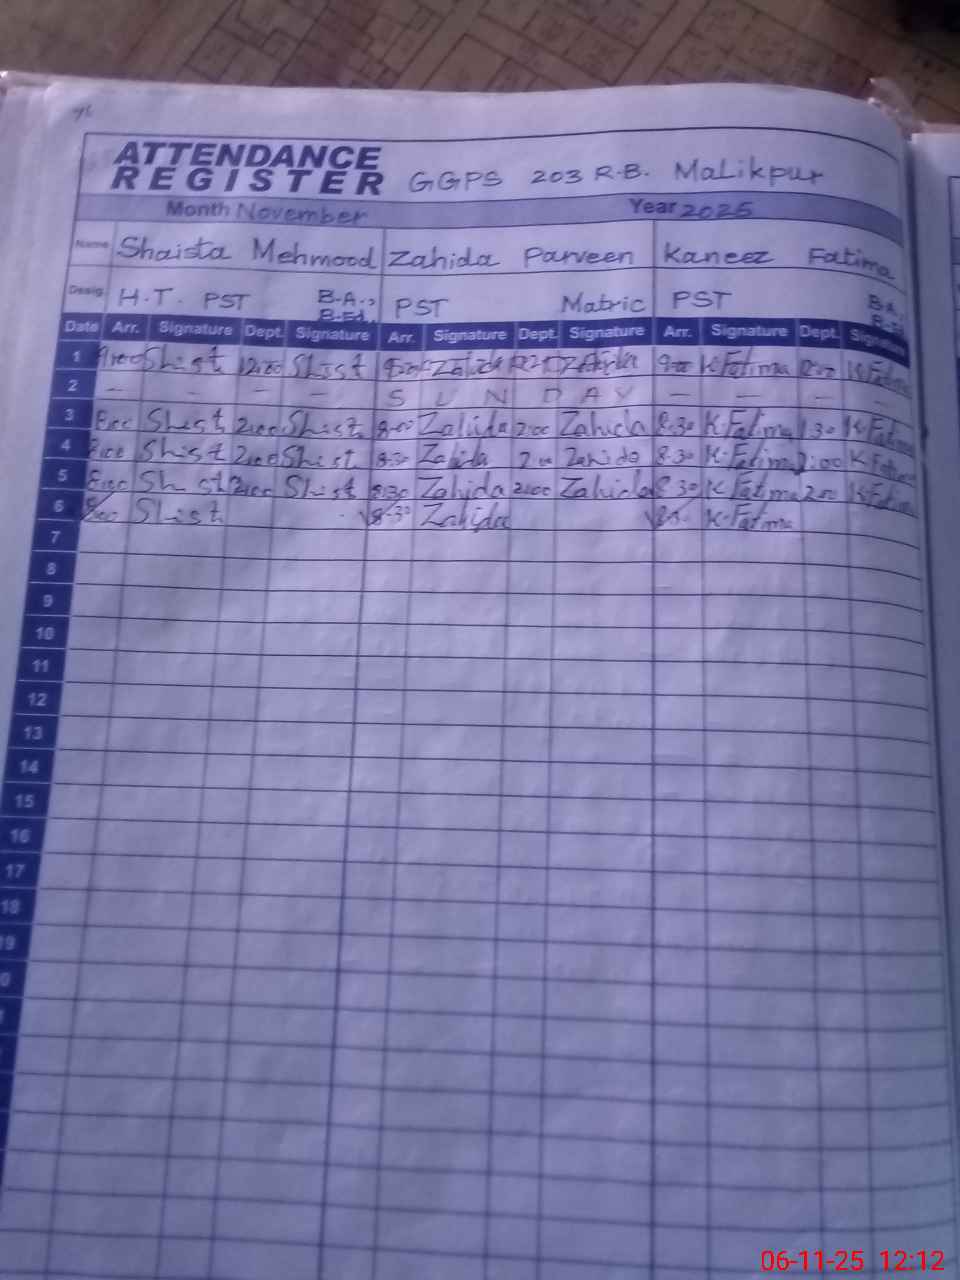 ATTENDANCE
REGISTER GGPS 203 R.B. Malikpur
Month November Year 2025
Name Shaista Mehmood Zahida Parveen Kaneez Fatima
Desig. H.T. PST B.A., B.Ed. PST Matric PST B.A., B.Ed.
Date Arr. Signature Dept. Signature Arr. Signature Dept. Signature Arr. Signature Dept. Signature
1 9:00 Shist 12:00 Shist Zahida Zahida 9:00 K.Fatima K.Fatima
2 — — — — S U N D A Y — — — —
3 8:00 Shist 2:00 Shist 8:00 Zahida 2:00 Zahida 8:30 K.Fatima 1:30 K.Fatima
4 8:00 Shist 2:00 Shist 8:30 Zahida 2:00 Zahida 8:30 K.Fatima 2:00 K.Fatima
5 8:00 Shist 2:00 Shist 8:30 Zahida 2:00 Zahida 8:30 K.Fatima 2:00 K.Fatima
6 8:00 Shist 8:30 Zahida K.Fatima
7
8
9
10
11
12
13
14
15
16
17
18
19
06-11-25 12:12